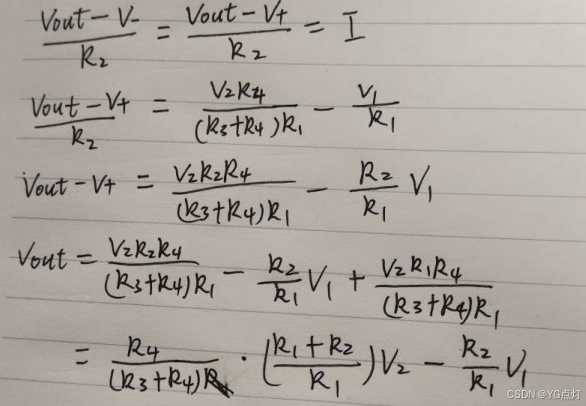 (Vout − V-)/R2 = (Vout − V+)/R2 = I
(Vout − V+)/R2 = V2R4/((R3+R4)R1) − V1/R1
Vout − V+ = V2R2R4/((R3+R4)R1) − (R2/R1) V1
Vout = V2R2R4/((R3+R4)R1) − (R2/R1) V1 + V2R1R4/((R3+R4)R1)
= R4/((R3+R4)) · ((R1+R2)/R1) V2 − (R2/R1) V1
CSDN @YG点灯